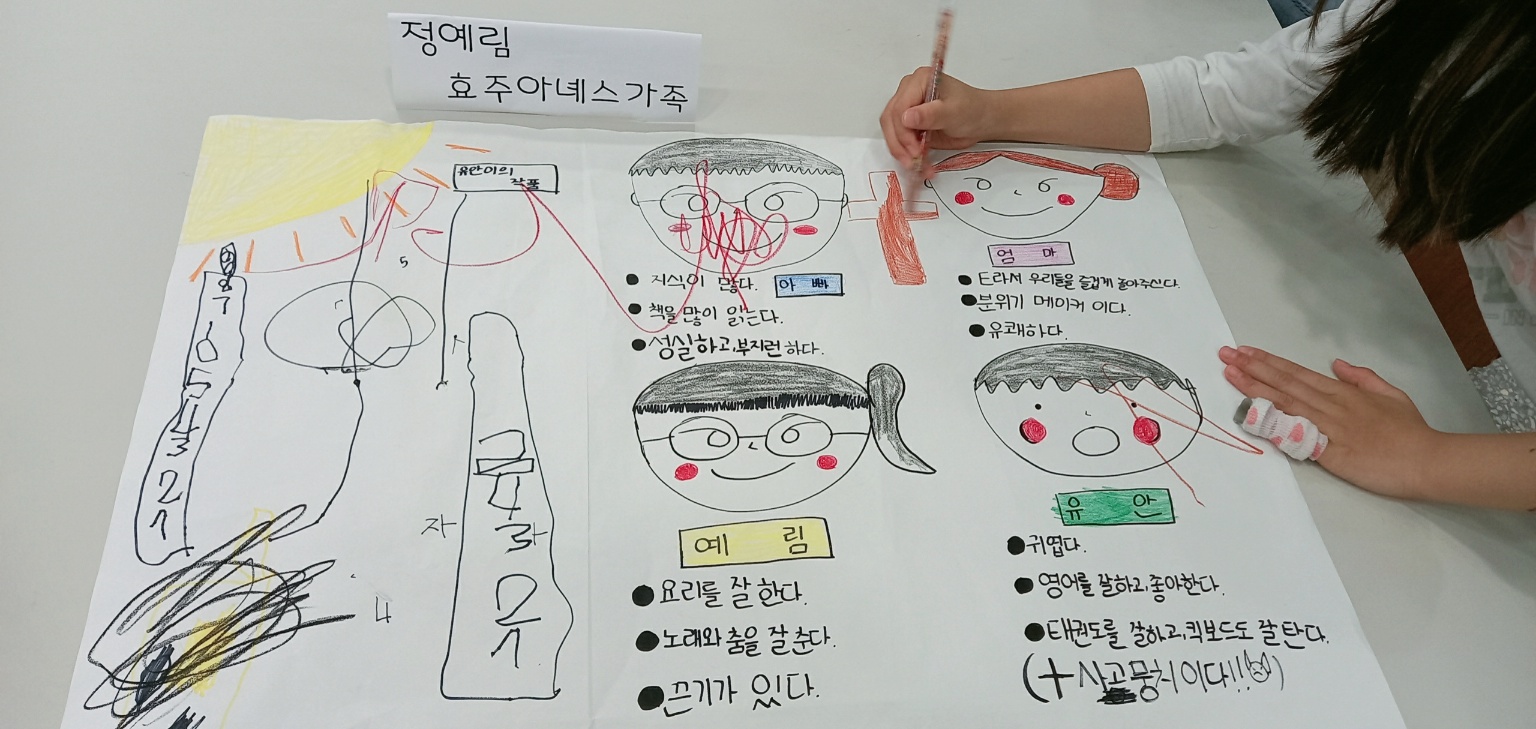 정예림
효주아녜스가족
유안이의
작품
아빠
지식이 많다.
책을 많이 읽는다.
성실하고, 부지런하다.
엄마
분위기 메이커 이다.
유쾌하다.
예림
요리를 잘 한다.
노래와 춤을 잘 춘다.
끈기가 있다.
유안
귀엽다.
영어를 잘하고, 좋아한다.
태권도를 잘하고, 퀵보드도 잘 탄다.
(+사고뭉치이다!!)
8
7
6
5
4
3
2
1
5
4
3
2
1
자
4